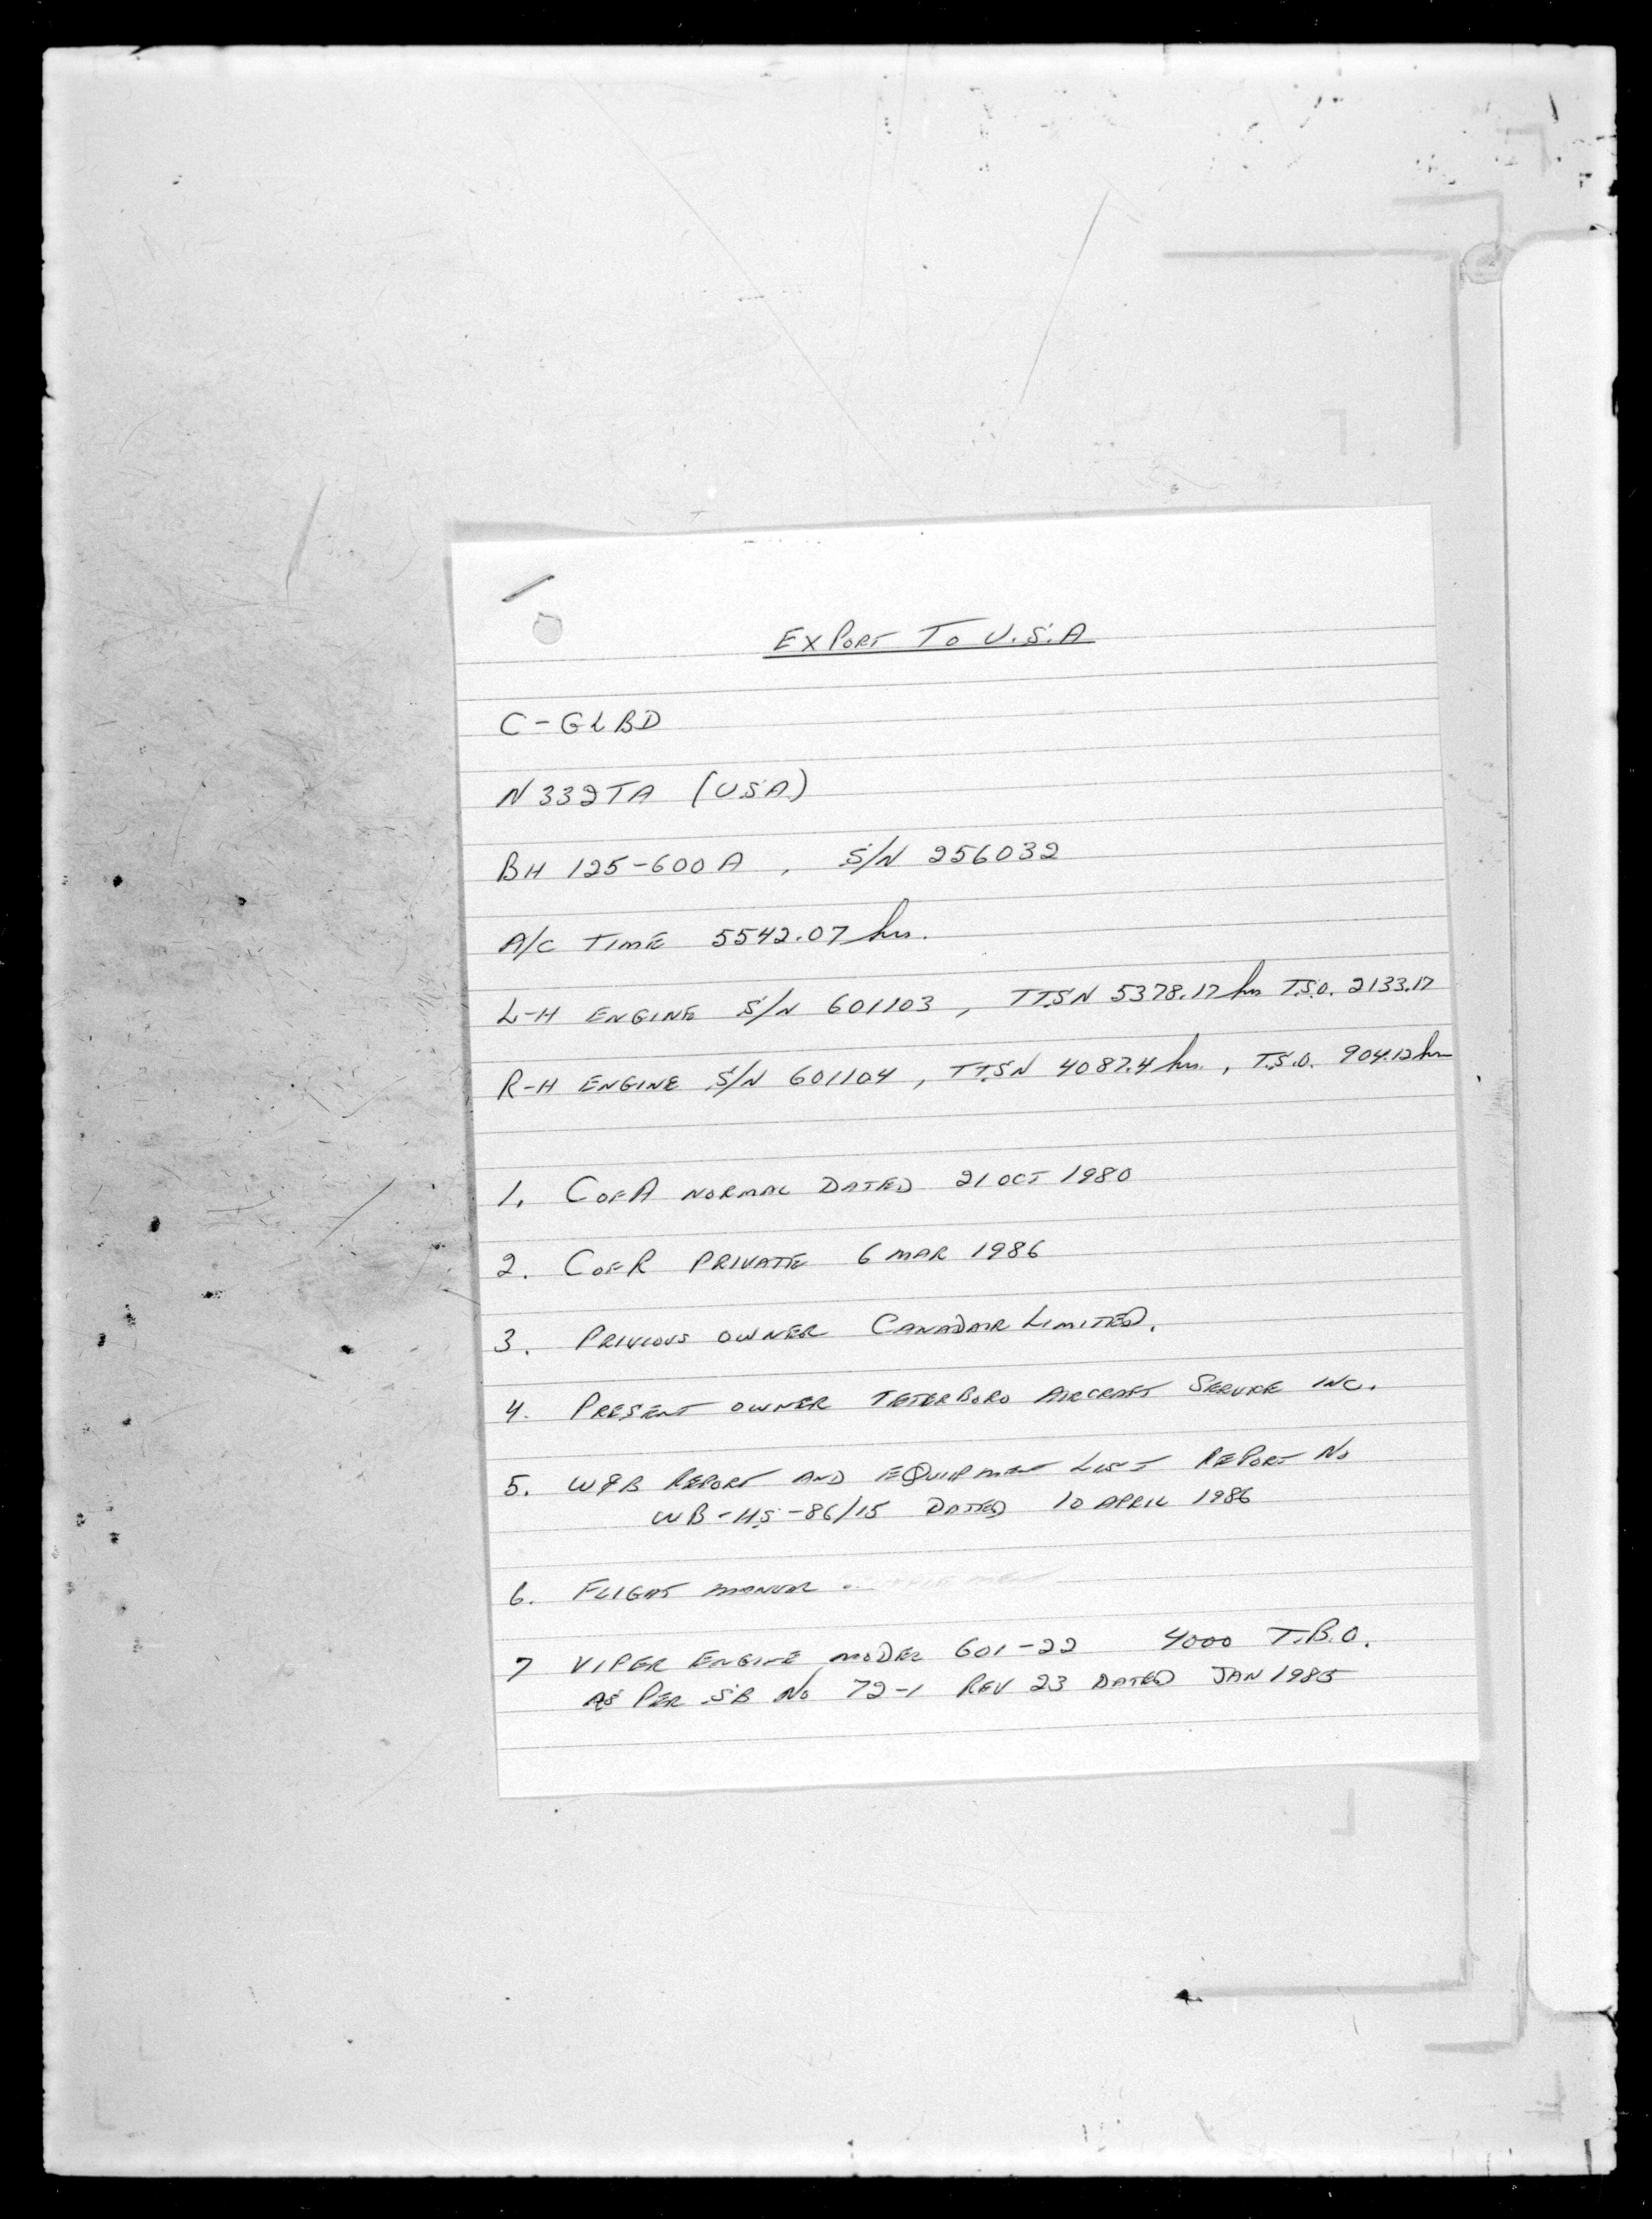 EXPORT TO U.S.A
C-GLBD
N332TA (USA)
BH 125-600A , S/N 256032
A/C TIME 5542.07 hrs.
L-H ENGINE S/N 601103, TTSN 5378.17 hrs T.S.O. 2133.17
R-H ENGINE S/N 601104, TTSN 4087.4 hrs., T.S.O. 904.12 hrs
1. C OF A NORMAL DATED 21 OCT 1980
2. C OF R PRIVATE 6 MAR 1986
3. PRIVIOUS OWNER CANADAIR LIMITED.
4. PRESENT OWNER TETERBORO AIRCRAFT SERVICE INC.
5. W&B REPORT AND EQUIPMENT LIST REPORT No
WB-HS-86/15 DATED 10 APRIL 1986
6. FLIGHT MANUAL
7 VIPER ENGINE MODEL 601-22 4000 T.B.O.
AS PER SB No 72-1 REV 23 DATED JAN 1985